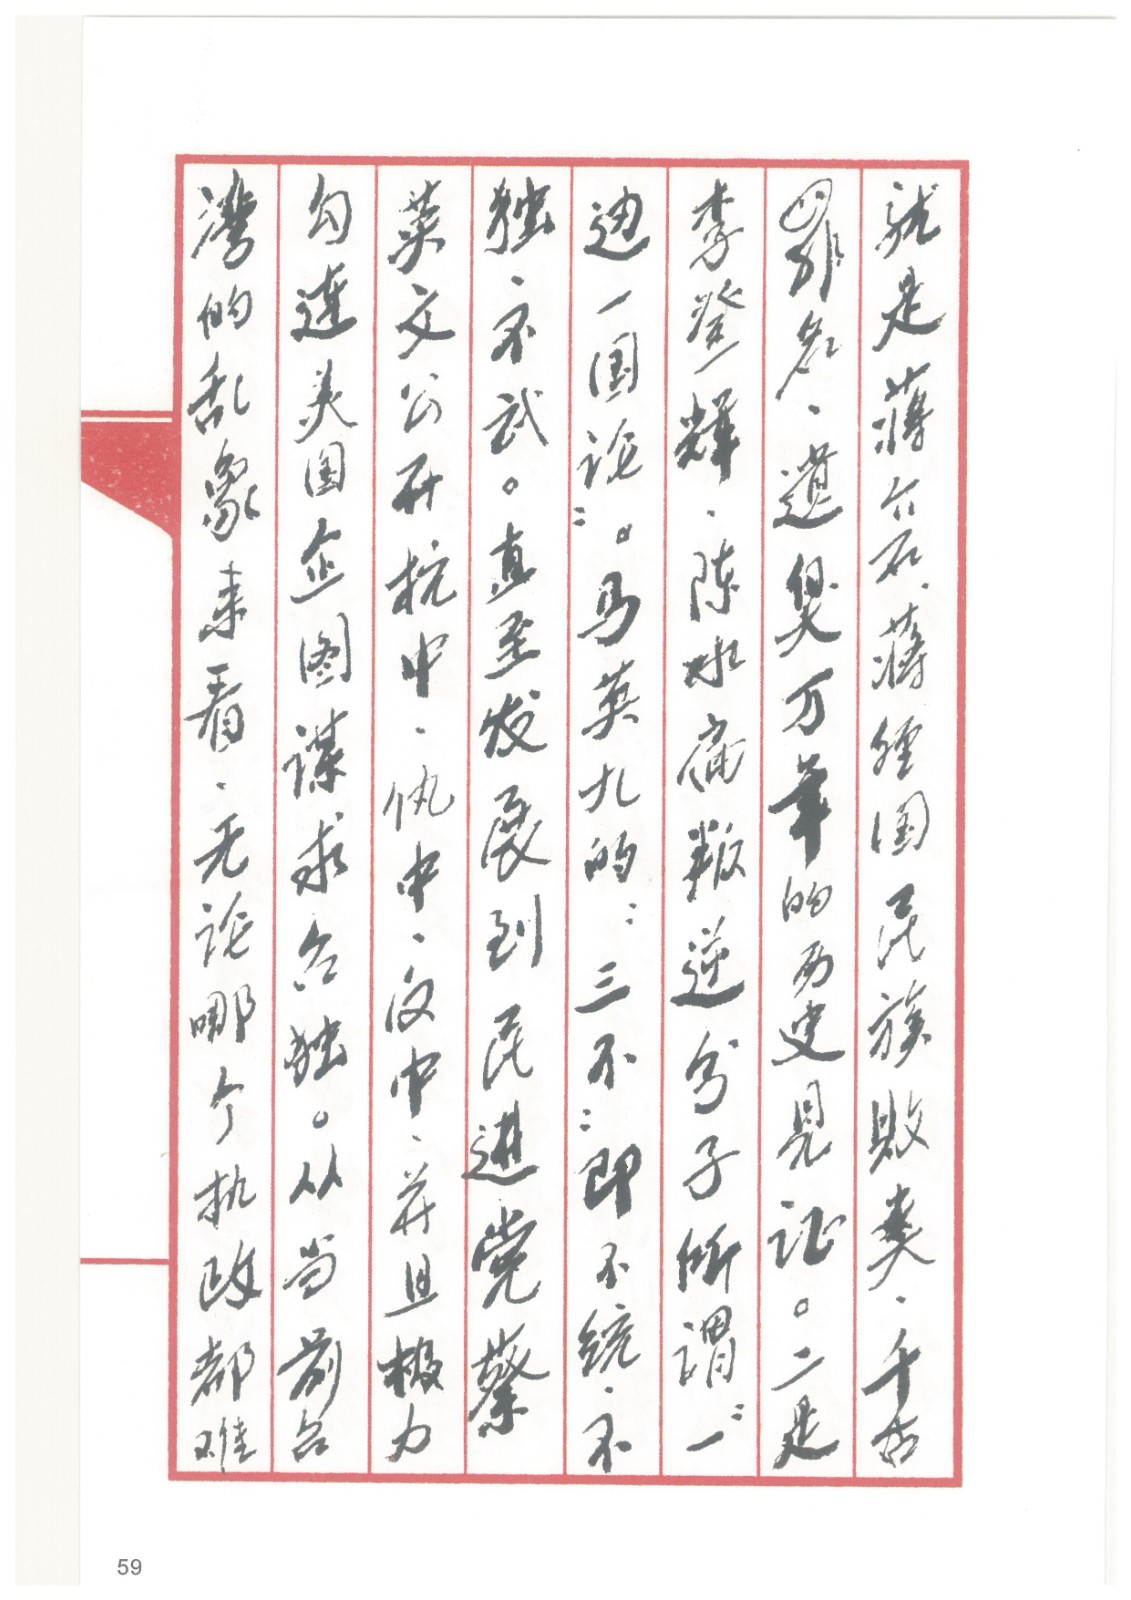 就是蒋介石、蒋经国民族败类、千古
罪名、遗臭万年的历史见证。二是
李登辉、陈水扁叛逆分子所谓“一
边一国论”。马英九的“三不”即不统、不
独、不武。直至发展到民进党蔡
英文公开抗中、仇中、反中、并且极力
勾连美国企图谋求台独。从当前台
湾的乱象来看、无论哪个执政都难
59